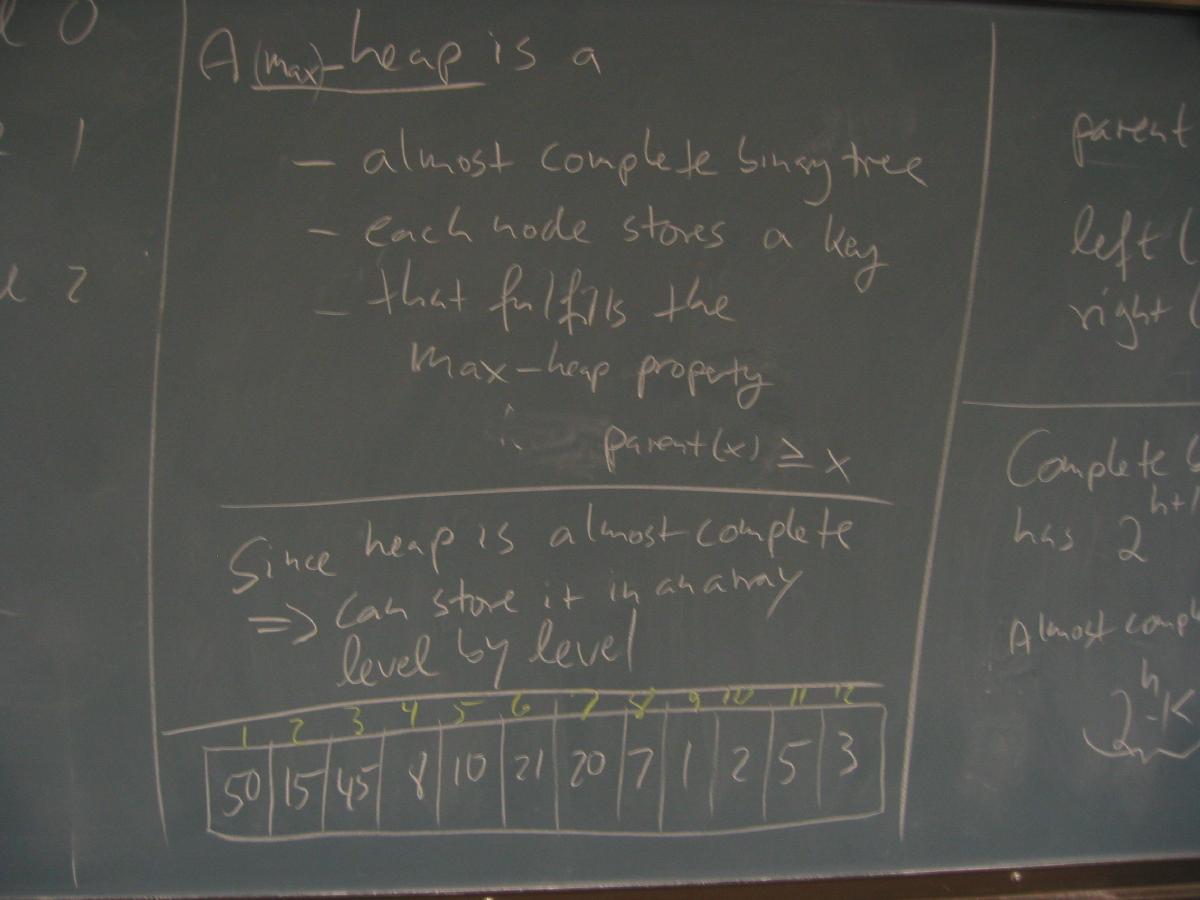 0
1
2
A (max)-heap is a
- almost complete binary tree
- each node stores a key
- that fulfills the
max-heap property
parent(x) ≥ x
Since heap is almost complete
=> can store it in an array
level by level
1 2 3 4 5 6 7 8 9 10 11 12
50 15 45 8 10 21 20 7 1 2 5 3
parent
left (
right (
Complete
has 2^h+1
Almost compl
2^h - K